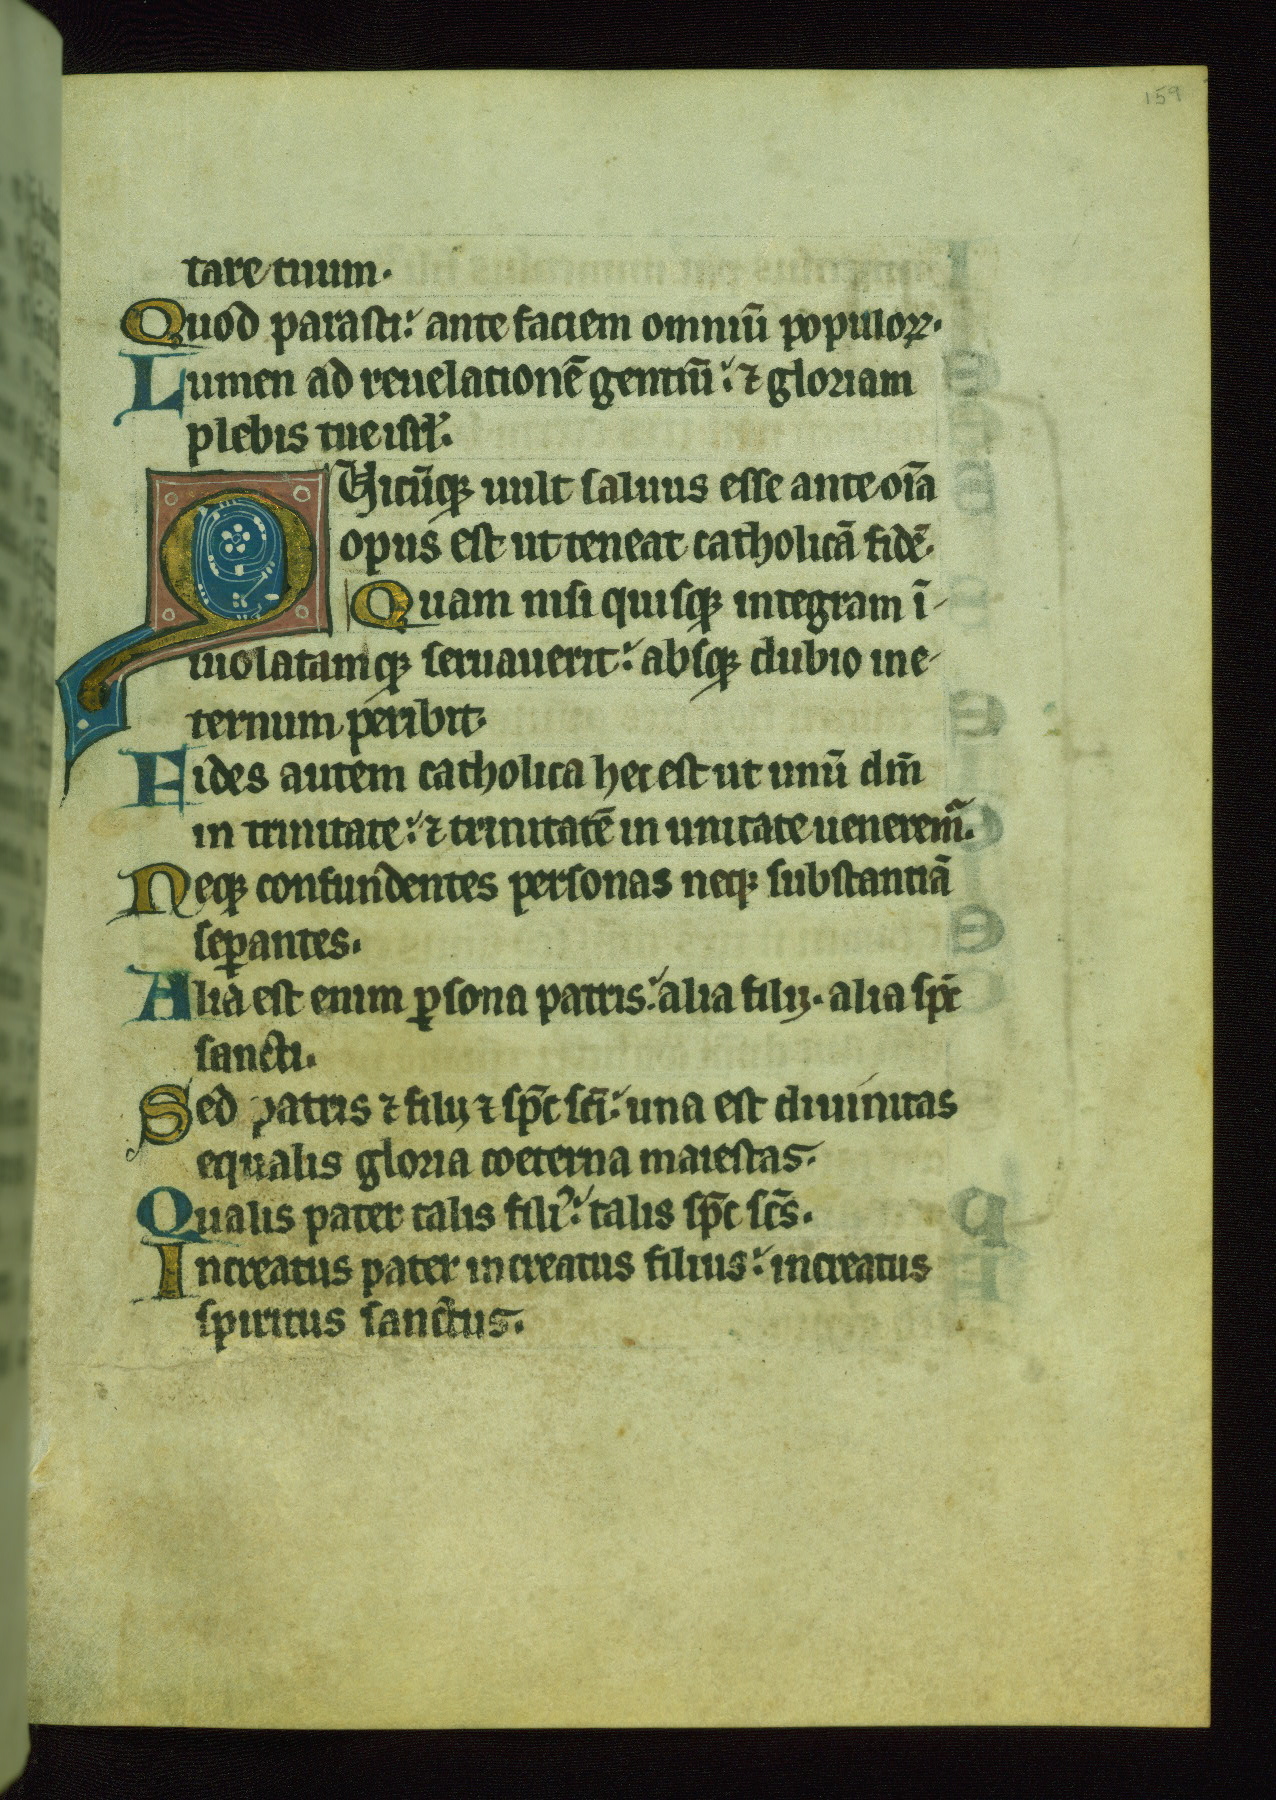 159
tare tuum.
Quod parasti: ante faciem omniū populoꝝ.
Lumen ad reuelationē gentiū: ⁊ gloriam
plebis tue isrl̓.
QVicūqꝫ uult saluus esse ante oīa
opus est ut teneat catholicā fidē.
Quam nisi quisqꝫ integram ī
uiolatamqꝫ seruauerit: absqꝫ dubio in e
ternum peribit.
Fides autem catholica hec est ut unū dm̄
in trinitate: ⁊ trinitatē in unitate uenerem̃.
Neqꝫ confundentes personas neqꝫ substantiā
seꝑantes.
Alia est enim ꝑsona patris: alia filij. alia sp̄c
sancti.
Sed patris ⁊ filij ⁊ sp̄c sc̄i: una est diuinitas
equalis gloria coeterna maiestas.
Qualis pater talis filiꝯ: talis sp̄c sc̄s.
Increatus pater increatus filius: increatus
spiritus sanctus.